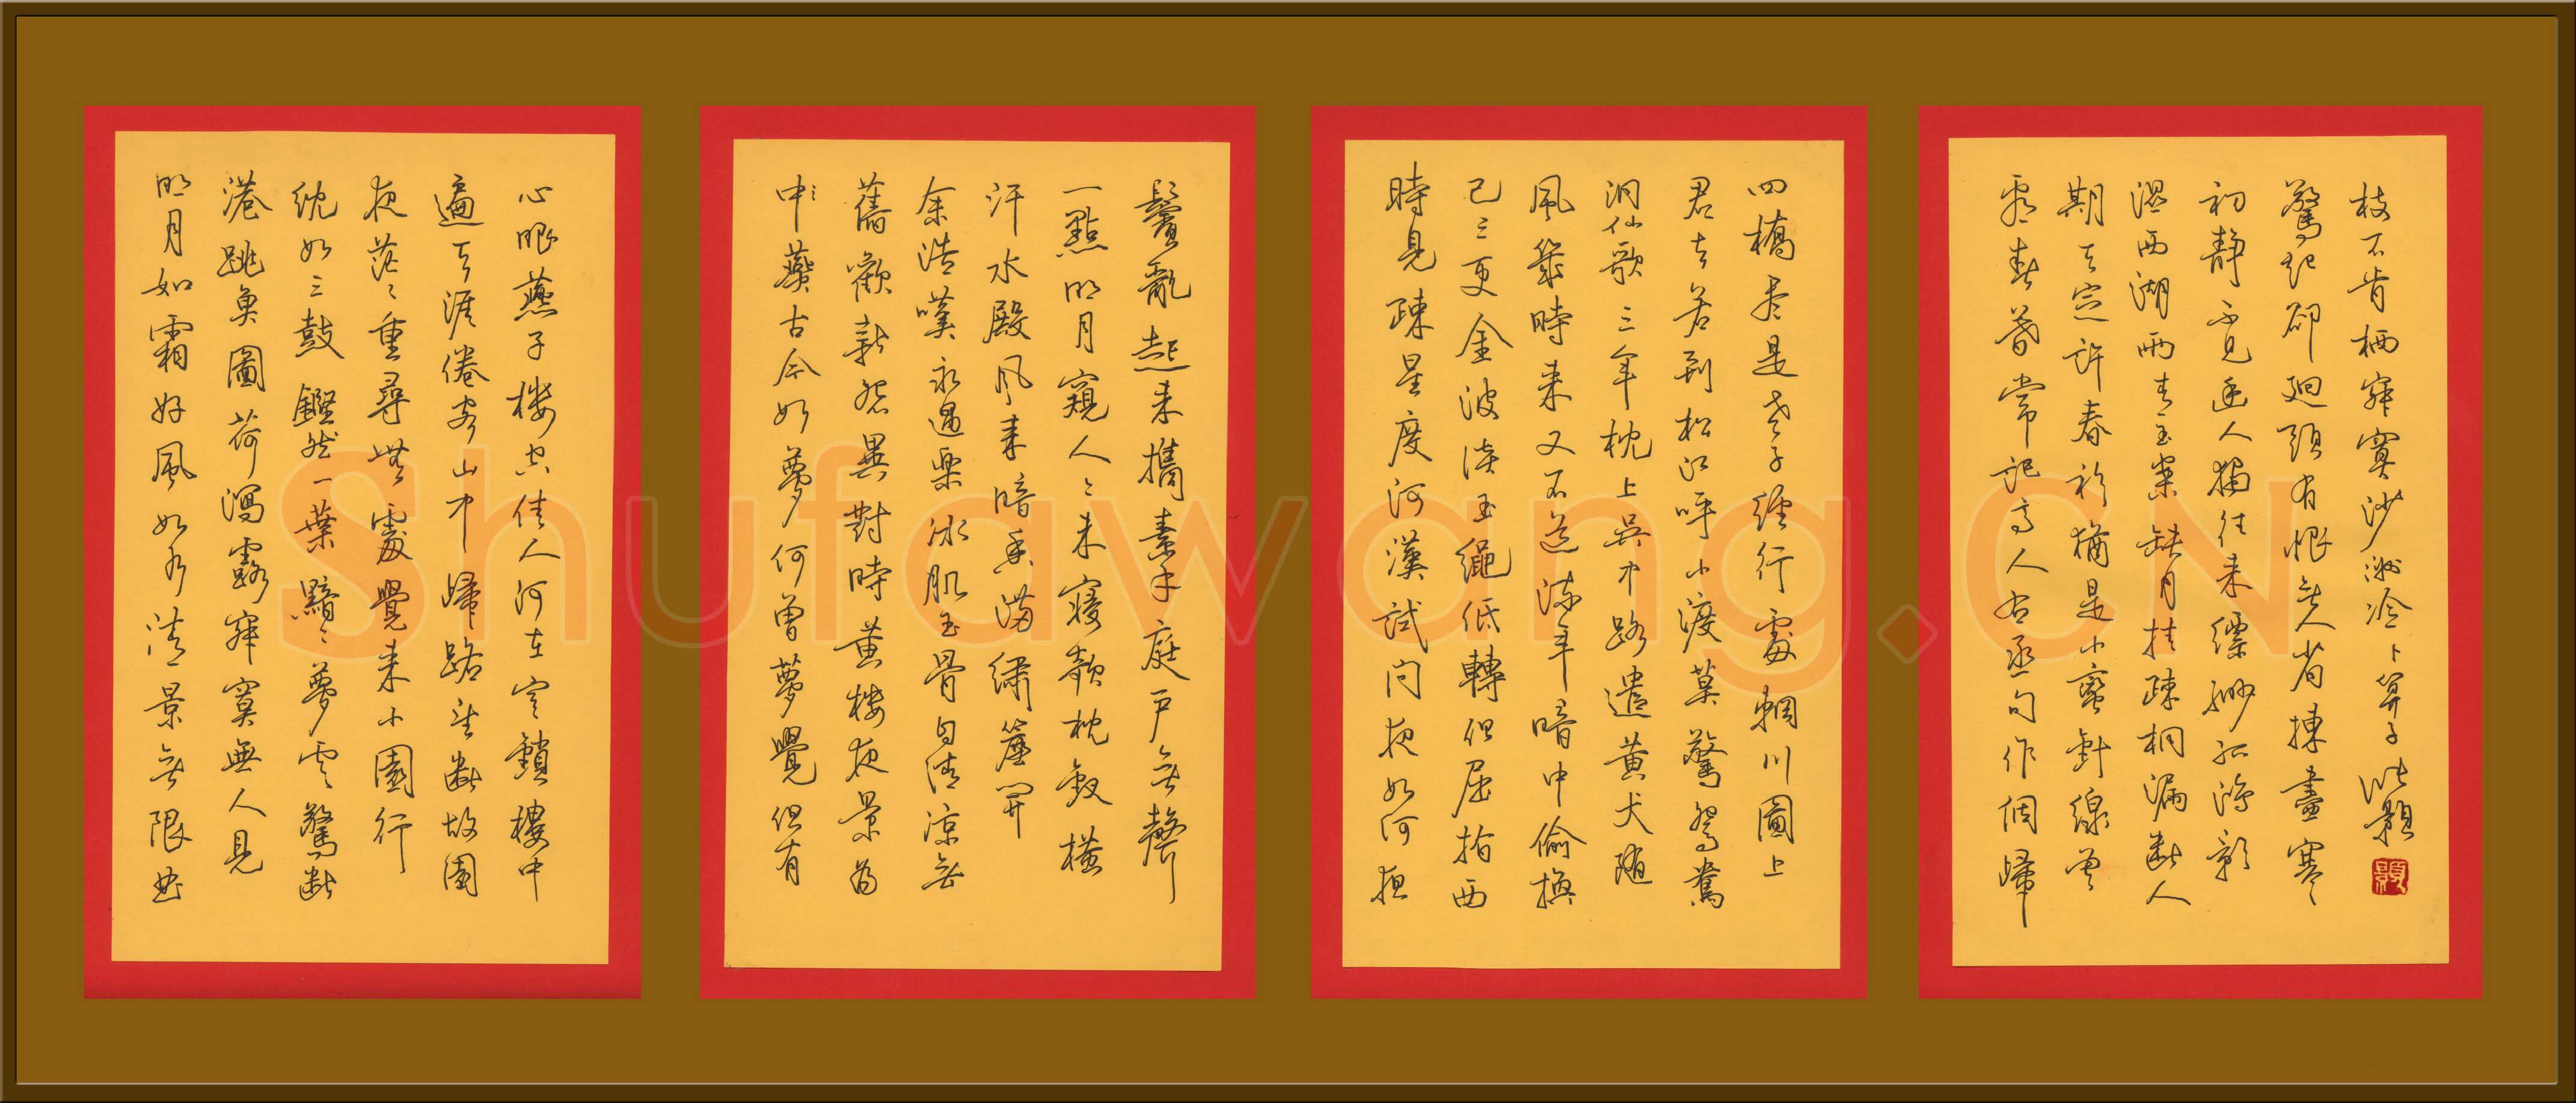 明月如霜好風如水清景無限曲
港跳魚圓荷瀉露寂寞無人見
紞如三鼓鏗然一葉黯〻夢雲驚斷
夜茫〻重尋無處覺來小園行
遍天涯倦客山中歸路望斷故園
心眼燕子樓空佳人何在空鎖樓中
中〻燕古今如夢何曾夢覺但有
舊歡新怨異對時黃樓夜景為
余浩嘆永遇樂冰肌玉骨自清涼無
汗水殿風來暗香滿繡簾開
一點明月窺人〻未寢欹枕釵橫
鬢亂起來攜素手庭戶無聲
時見疎星度河漢試問夜如何夜
已三更金波淡玉繩低轉但屈指西
風幾時來又不道流年暗中偷換
洞仙歌三年枕上吳中路遣黃犬隨
君去若到松江呼小渡莫驚鴛鴦
四橋盡是老子經行處輞川圖上
看春暮常記高人右丞句作個歸
期天定許春衫猶是小蠻針線曾
濕西湖雨青玉案缺月挂疎桐漏斷人
初靜不見幽人獨往來縹緲孤鴻影
驚起卻迴頭有恨無人省揀盡寒
枝不肯栖寂寞沙洲冷卜算子
Shufawang.CN